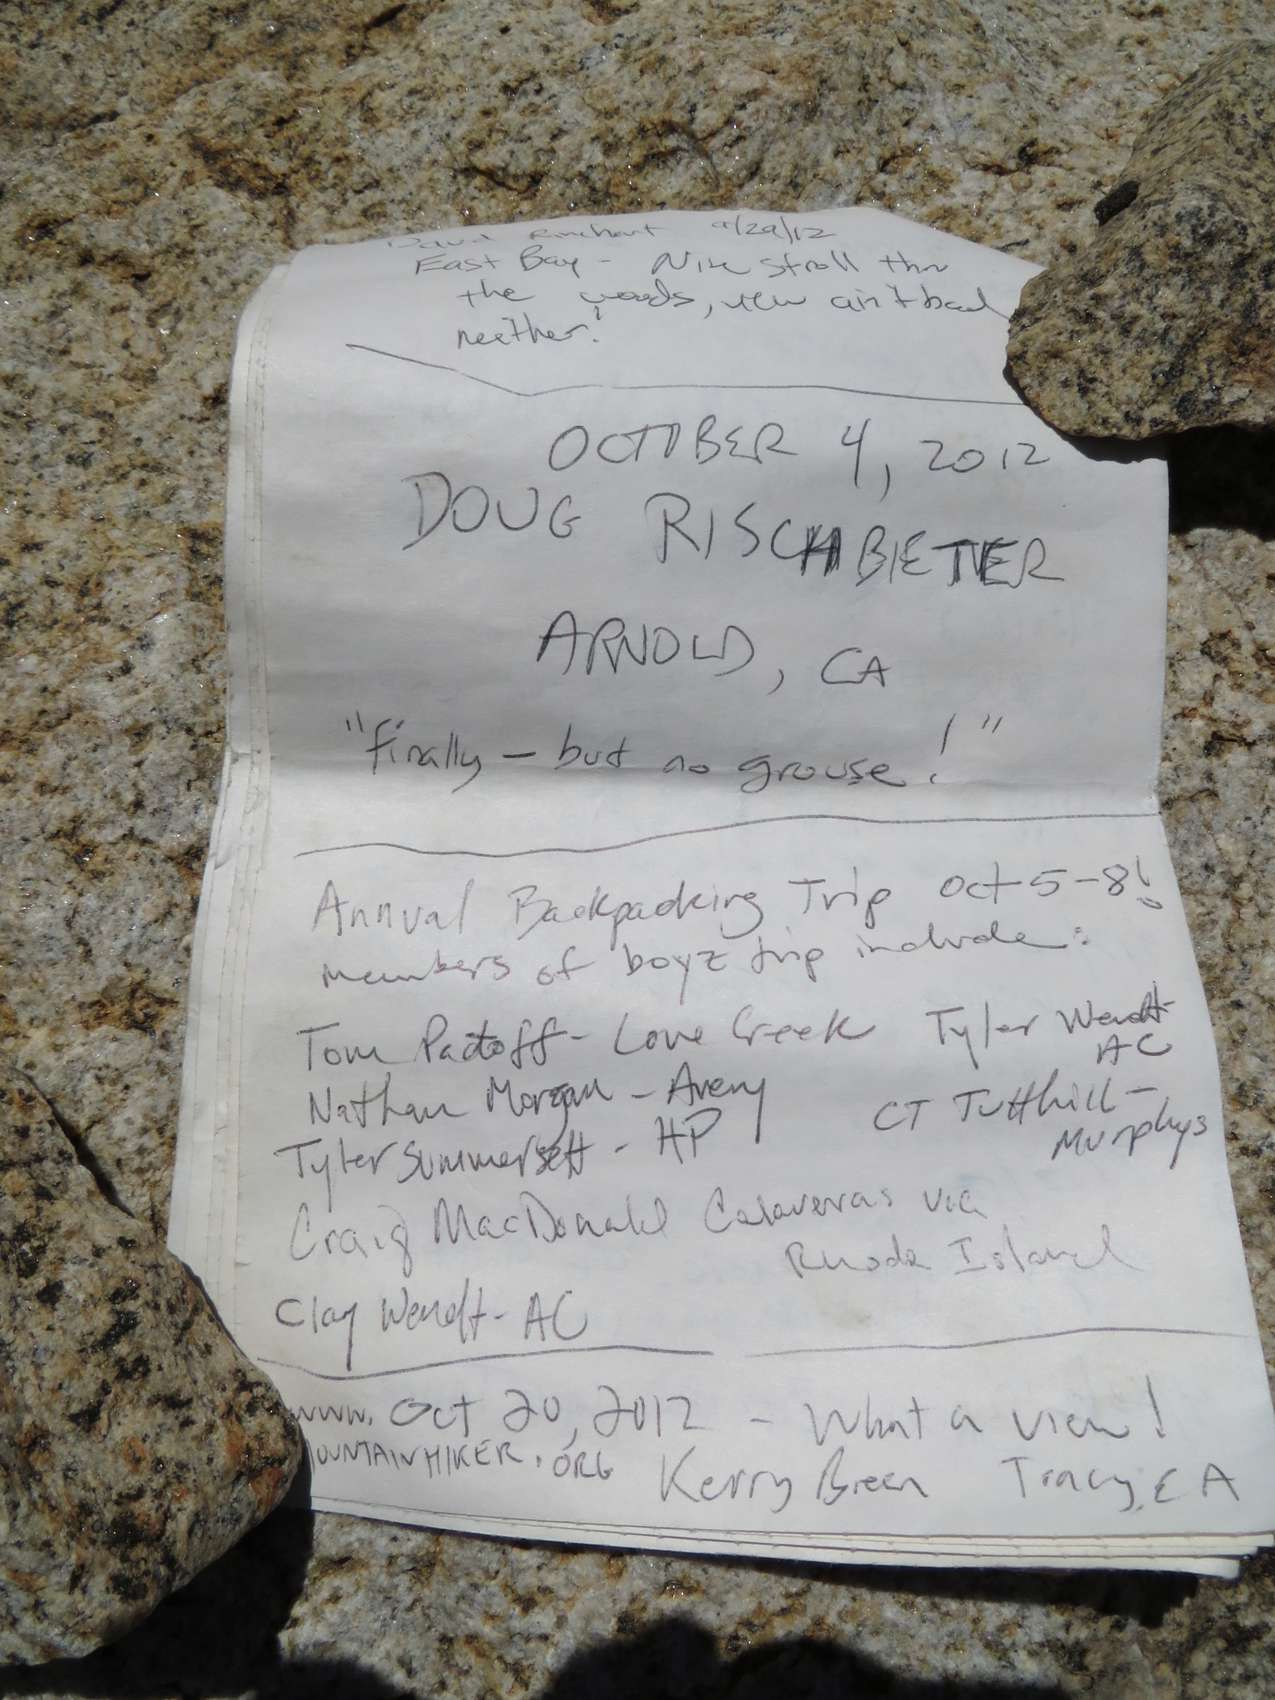 David Rinehart 9/29/12
East Bay - Nice stroll thru
the woods, view ain't bad
neither!
OCTOBER 4, 2012
DOUG RISCHBIETER
ARNOLD, CA
"finally - but no grouse!"
Annual Backpacking Trip Oct 5-8!
members of boyz trip include:
Tom Pactoff - Love Creek Tyler Wendt-
AC
Nathan Morgan - Avery CT Tutthill -
Murphys
Tyler Summersett - HP
Craig MacDonald Calaveras via
Rhode Island
Clay Wendt - AC
www. Oct 20, 2012 - What a view!
MOUNTAINHIKER.ORG Kerry Breen Tracy, CA